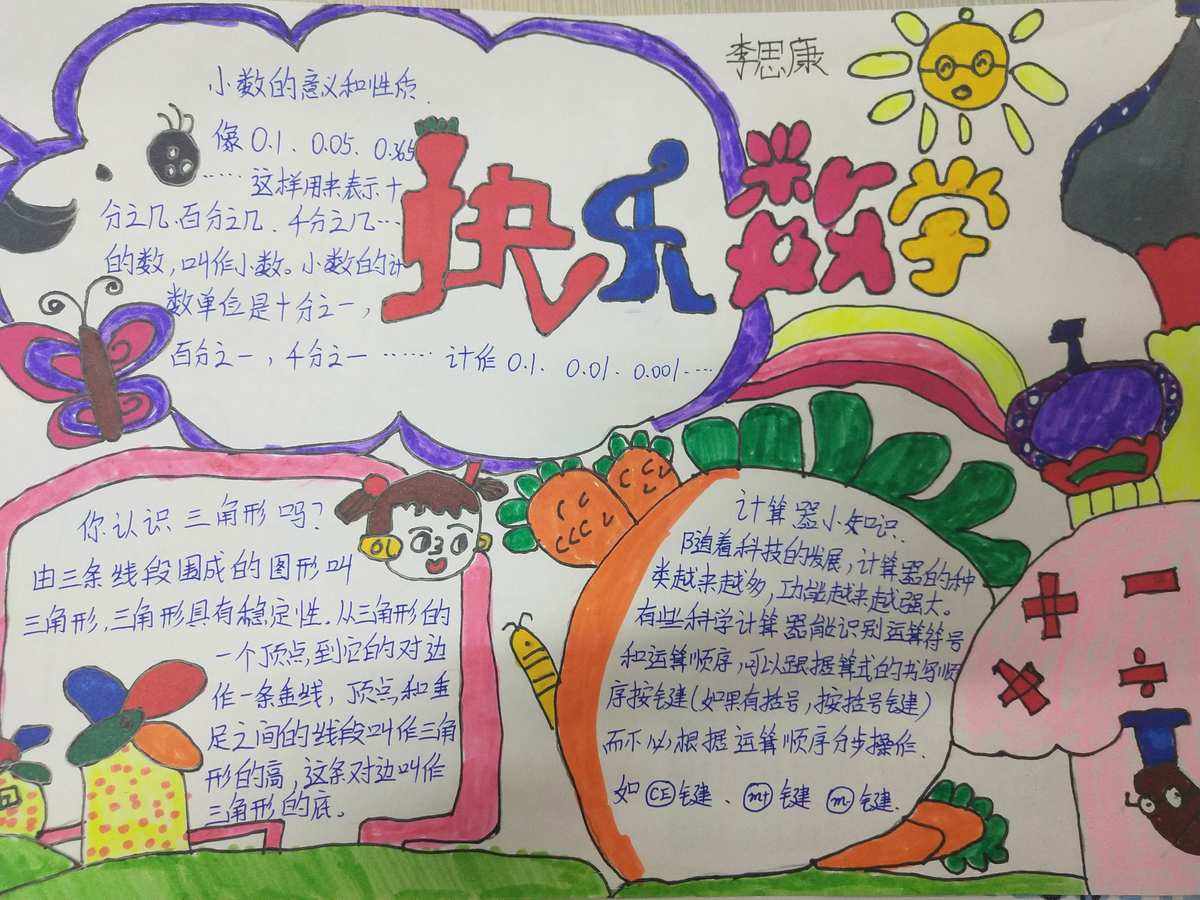 李思康
快乐数学
小数的意义和性质.
像0.1、0.05、0.365
……这样用来表示十
分之几、百分之几、千分之几…
的数,叫作小数。小数的计
数单位是十分之一,
百分之一,千分之一……计作0.1、0.01、0.001…
你认识三角形吗?
由三条线段围成的图形叫
三角形,三角形具有稳定性.从三角形的
一个顶点,到它的对边
作一条垂线,顶点和垂
足之间的线段叫作三角
形的高,这条对边叫作
三角形的底。
计算器小知识.
随着科技的发展,计算器的种
类越来越多,功能越来越强大。
有些科学计算器能识别运算符号
和运算顺序,可以跟据算式的书写顺
序按键(如果有括号,按括号键)
而不必根据运算顺序分步操作.
如CE键、m+键m-键.
+ −
× ÷